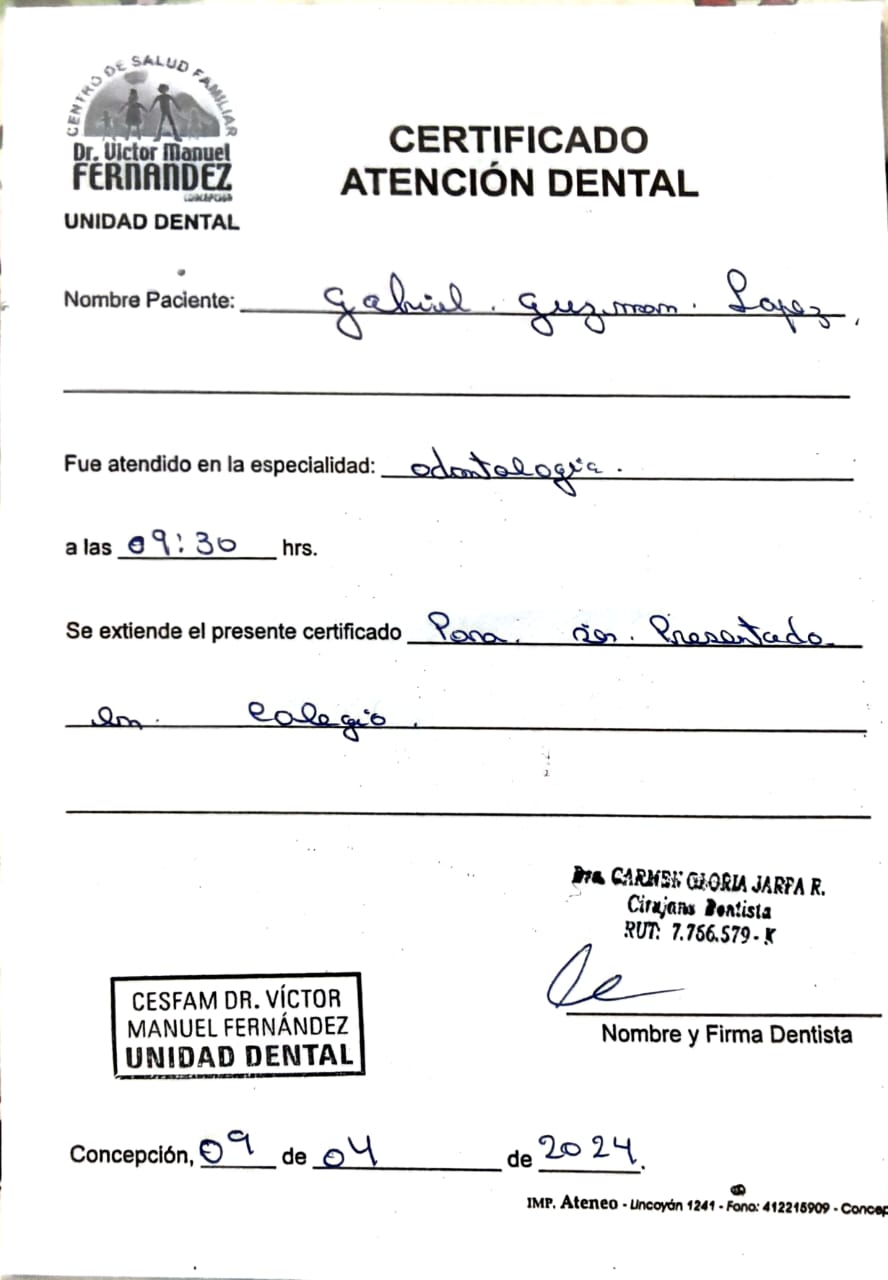 CENTRO DE SALUD FAMILIAR
Dr. Victor Manuel
FERNANDEZ
CONCEPCIÓN
UNIDAD DENTAL
CERTIFICADO
ATENCIÓN DENTAL
Nombre Paciente: Gabriel. Guzman. Lopez,
Fue atendido en la especialidad: odontologia.
a las 09:30 hrs.
Se extiende el presente certificado Para. ser. Presentado
en. Colegio.
Dra. CARMEN GLORIA JARPA R.
Cirujano Dentista
RUT: 7.766.579-K
Nombre y Firma Dentista
CESFAM DR. VÍCTOR
MANUEL FERNÁNDEZ
UNIDAD DENTAL
Concepción, 09 de 04 de 2024.
IMP. Ateneo - Lincoyán 1241 - Fono: 412215909 - Concep